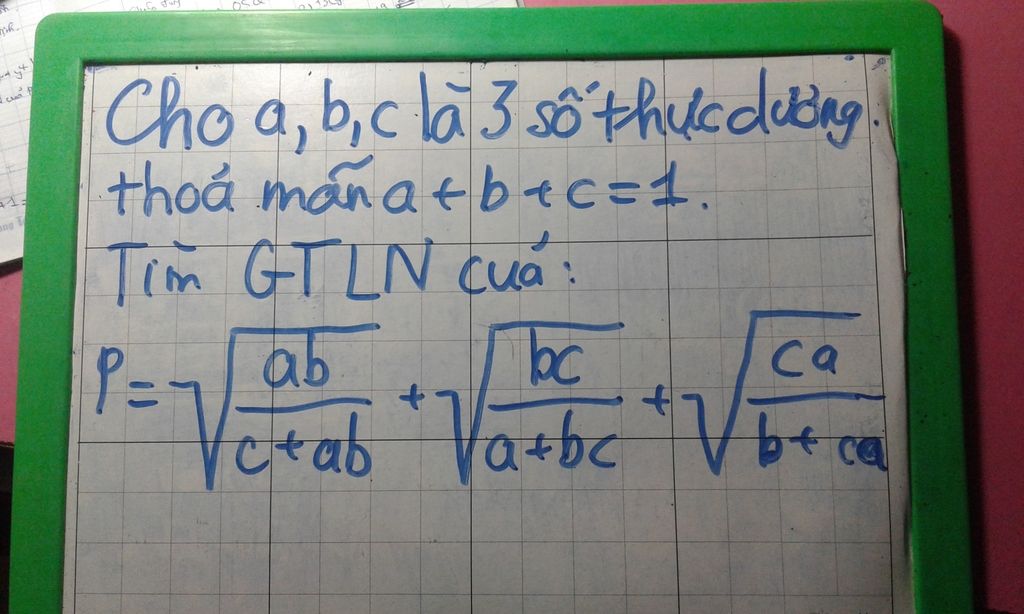 Cho a, b, c là 3 số thực dương.
thoả mãn a + b + c = 1.
Tìm GTLN của:
P = √(ab/(c+ab)) + √(bc/(a+bc)) + √(ca/(b+ca))